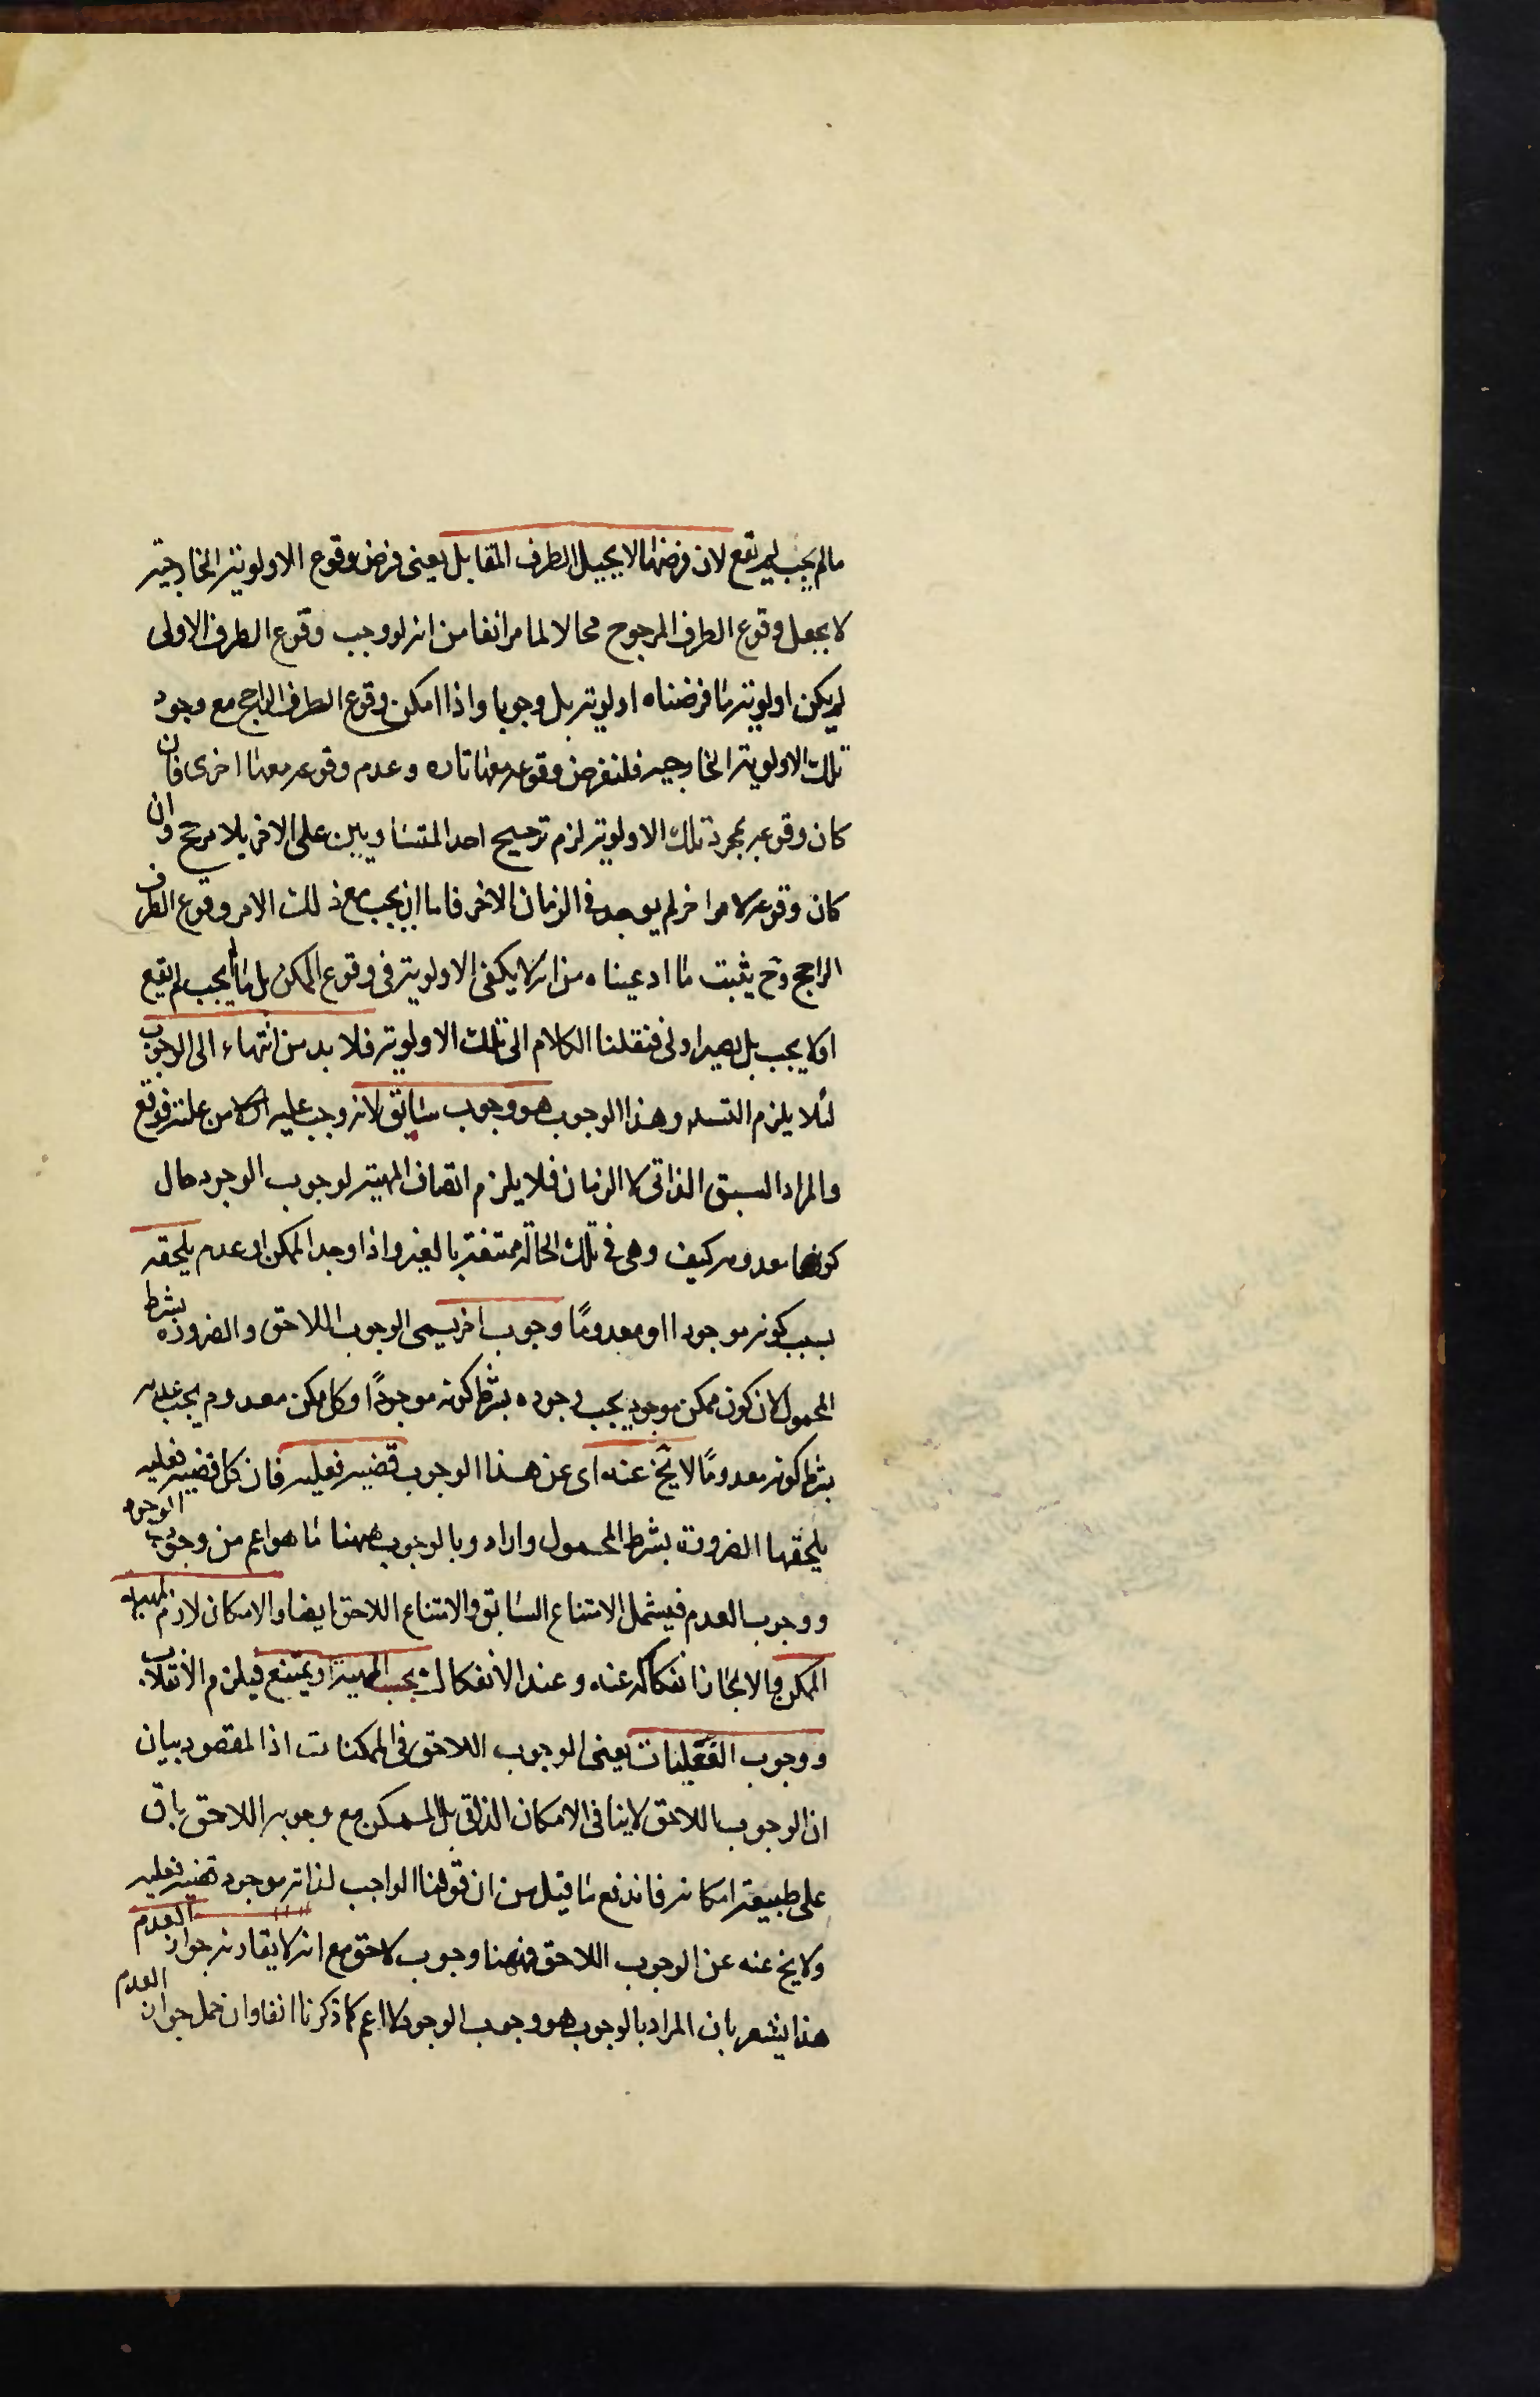 مالم يجب لم يقع لان فرضها لا يحيل الطرف المقابل يعنى فرض وقوع الاولوية الخارجية
لا يجعل وقوع الطرف المرجوح محالا لما مر انفا من انه لو وجب وقوع الطرف الاولى
لم يكن اولوية ما فرضناه اولوية بل وجوبا واذا امكن وقوع الطرف الراجح مع وجود
تلك الاولوية الخارجيه فلنفرض وقوعه معها تاره وعدم وقوعه معها اخرى فان
كان وقوعه بمجرد تلك الاولوية لزم ترجيح احد المتساويين على الاخر بلا مرجح وان
كان وقوعه لامر اخر لم يوجد فى الزمان الاخر فاما ان يجب مع ذلك الامر وقوع الطرف
الراجح وح يثبت ما ادعيناه من انه لا يكفى الاولوية فى وقوع الممكن بل ما لم يجب لم يقع
او لا يجب بل يصير اولى فنقلنا الكلام الى تلك الاولوية فلا بد من انتهاء الى الوجوب
لئلا يلزم التسلسل وهذا الوجوب هو وجوب سابق لانه وجب عليه اولا من علته فوقع
والمراد السبق الذاتى لا الزمان فلا يلزم اتصاف المهية لوجوب الوجود حال
كونها معدومه كيف وهى فى تلك الحالة ممتنعة بالغير واذا وجد الممكن او عدم يلحقه
بسبب كونه موجودا او معدومًا وجوب اخر يسمى الوجوب اللاحق والضروره بشرط
المحمول لان كون ممكن موجود يجب وجوده بشرط كونه موجودًا وكل ممكن معدوم يجب عدمه
بشرط كونه معدومًا لا يخ عنه اى عن هذا الوجوب قضيه فعليه فان كل قضيه فعليه
يلحقها الضرورة بشرط المحمول واراد وبالوجوب ههنا ما هو اعم من وجوب الوجود
ووجوب العدم فيشمل الامتناع السابق والامتناع اللاحق ايضا والامكان لازم لمهية
الممكن والا لجاز انفكاكه عنه وعند الانفكاك يجب المهية او يمتنع فيلزم الانقلاب
ووجوب الفعليات يعنى الوجوب اللاحق فى الممكنات اذ المقصود بيان
ان الوجوب اللاحق لا ينافى الامكان الذاتى بل الممكن مع وجوبه اللاحق باق
على طبيعة امكانه فاندفع ما قيل من ان قولنا الواجب لذاته موجود قضيه فعليه
ولا يخ عنه عن الوجوب اللاحق فههنا وجوب لاحق مع انه لا يقارنه جواز العدم
هذا يشعر بان المراد بالوجوب هو وجوب الوجود لا اعم كما ذكرنا انفا وان حمل جواز العدم